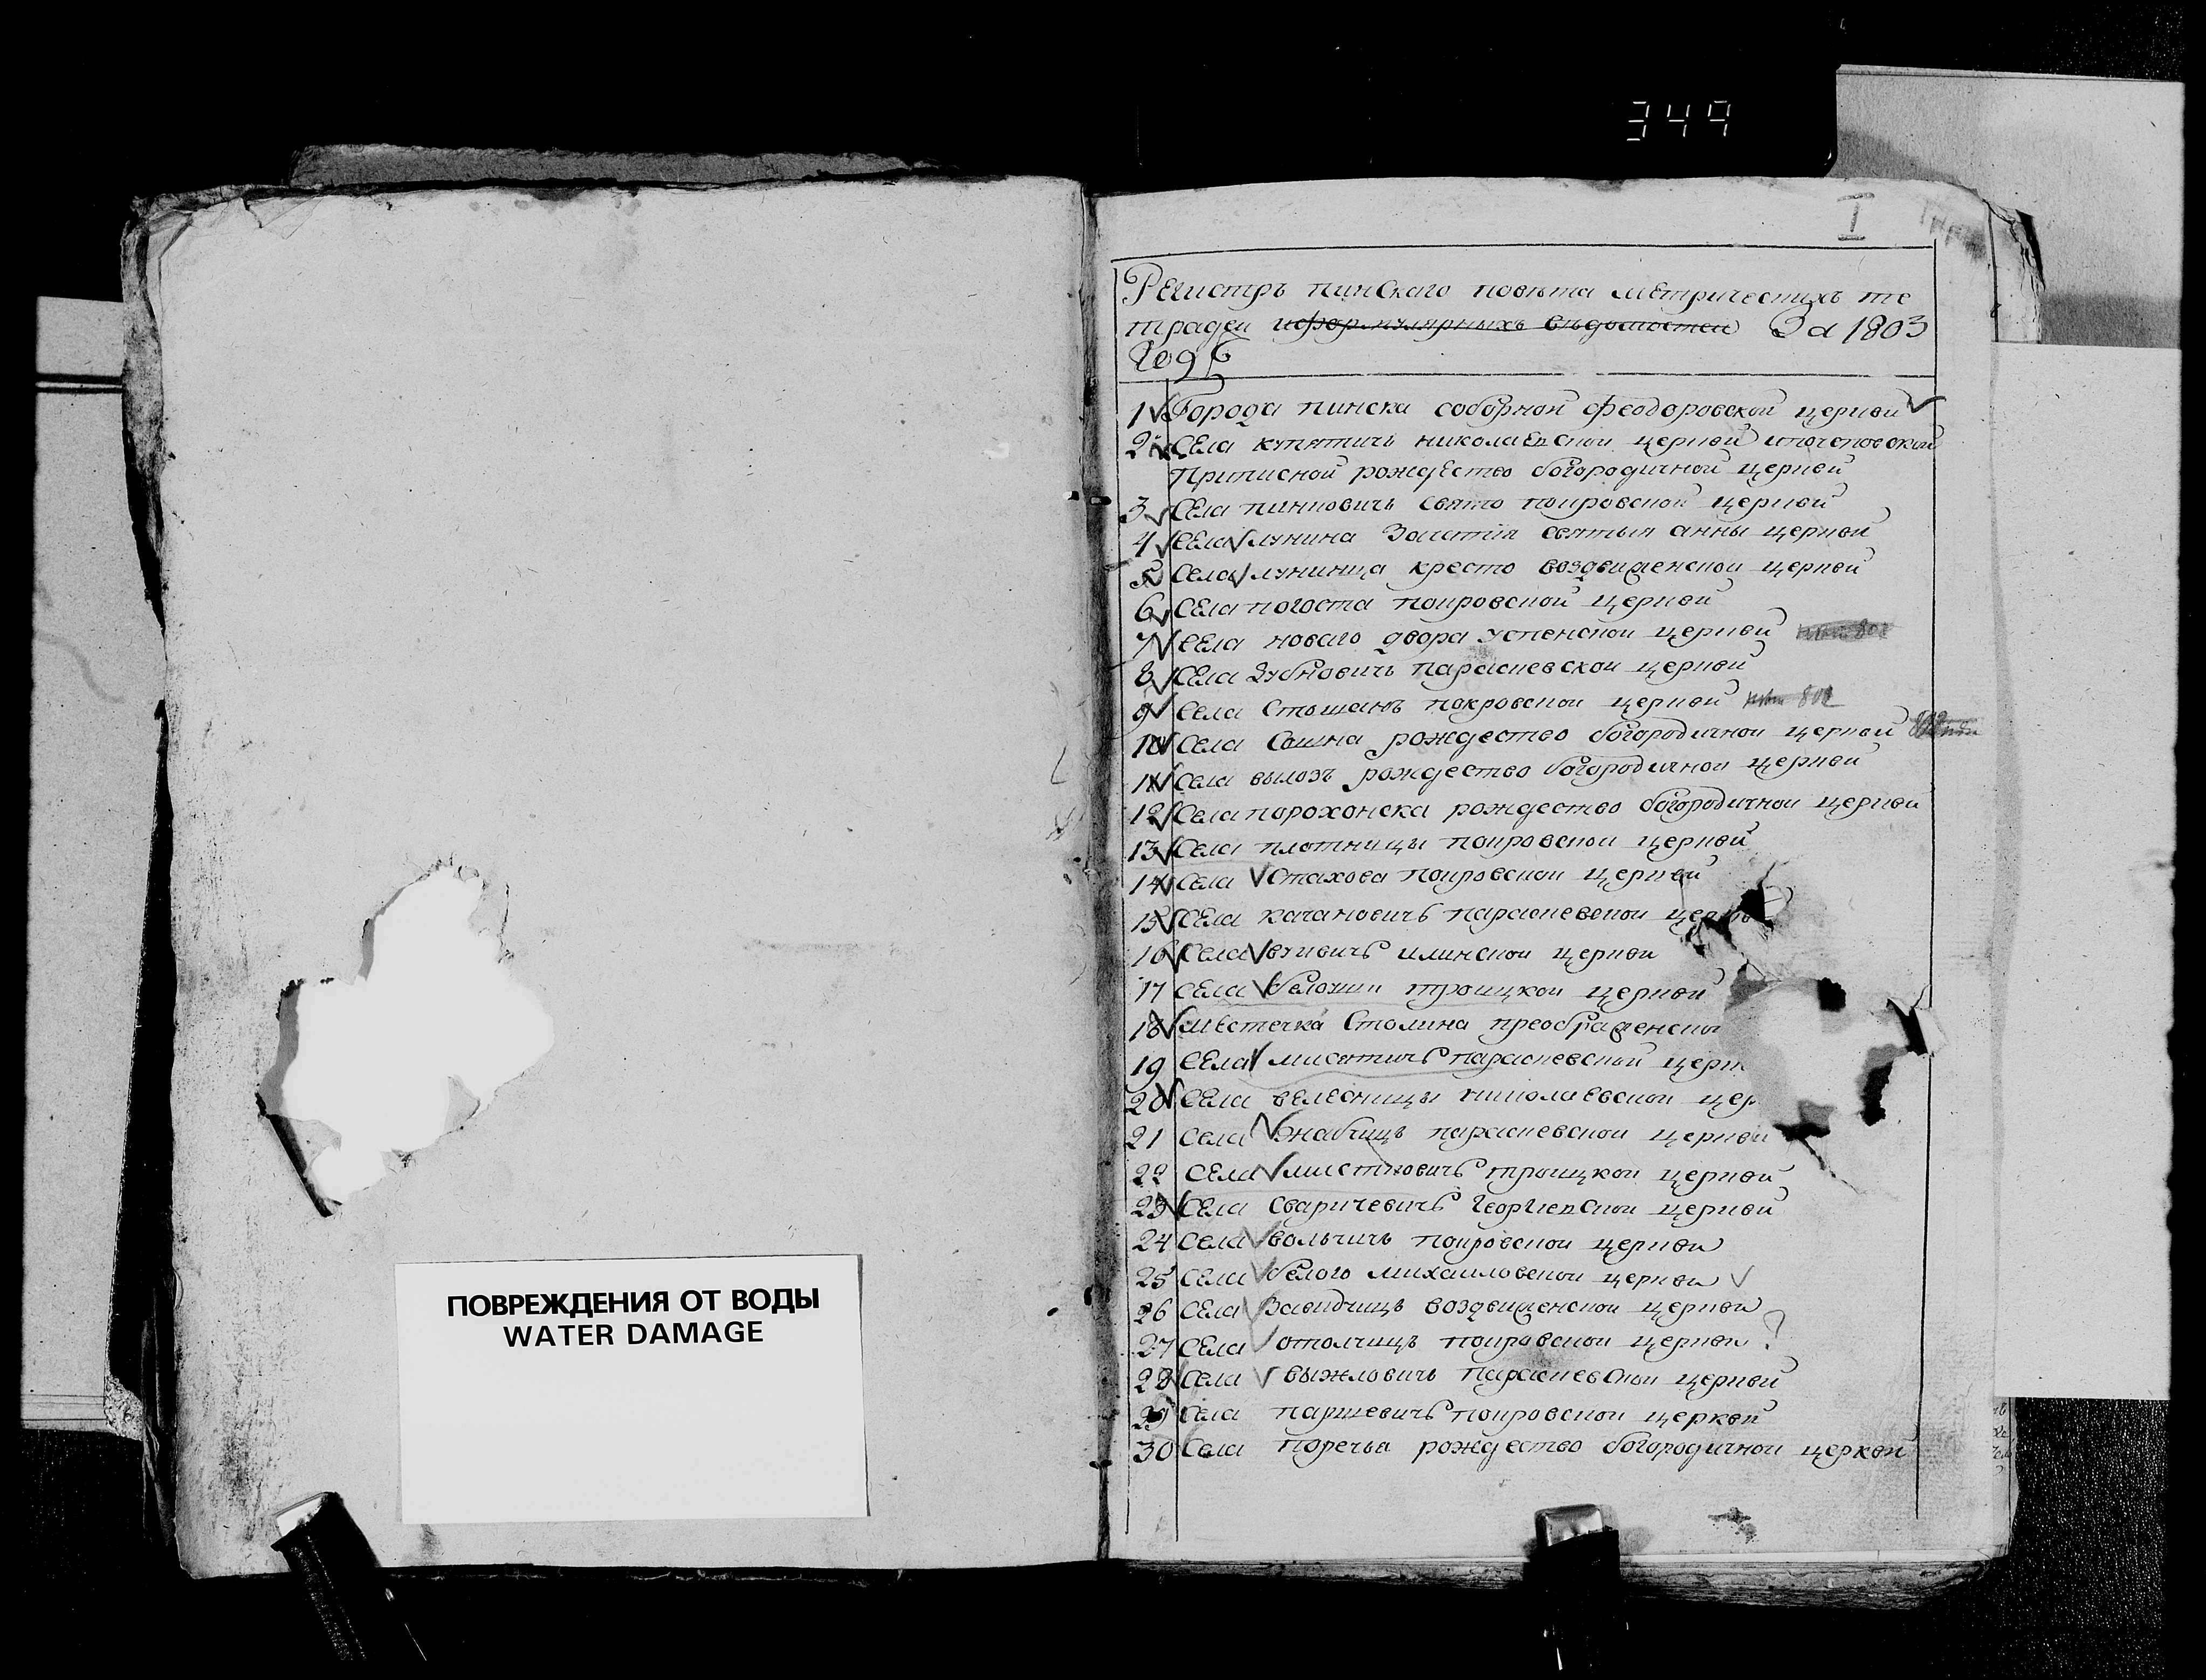 349
I
Регистръ пинскаго повѣта метрическихъ те
традей иформулярныхъ вѣдомостей За 1803
годъ
1 Города пинска соборной феодоровской церкви
2 Села купятичь николаевской церкви
приписной рождество богородичной церкви
3 Села пинковичь свято покровской церкви
4 Села лунина Зачатія святыя анны церкви
5 Села лунинца кресто воздвиженской церкви
6 Села погоста покровской церкви
7 Села новаго двора успенской церкви
8 Села дубновичь параскевской церкви
9 Села Стошанъ покровской церкви 802
10 Села Сошна рождество богородичной церкви
11 Села вылозъ рождество богородичной церкви
12 Села порохонска рождество богородичной церкви
13 Села плотницы покровской церкви
14 Села Стахова покровской церкви
15 Села качановичь параскевской
16 Села вуивичь илинской церкви
17 Села троицкой церкви
18 местечка Столина преображенской
19 Села мисятичь параскевской церк
20 Села велесницы николаевской цер
21 Села параскевской церкви
22 Села мистковичь троицкой церкви
23 Села сваричевичь георгіевской церкви
24 Села вольчичь покровской церкви
25 Села белого михаиловской церкви
26 Села Завидчицъ воздвиженской церкви
27 Села отолчицъ покровской церкви ?
28 Села выжловичь параскевской церкви
29 Села паршевичь покровской церкви
30 Села поречья рождество богородичной церкви
ПОВРЕЖДЕНИЯ ОТ ВОДЫ
WATER DAMAGE